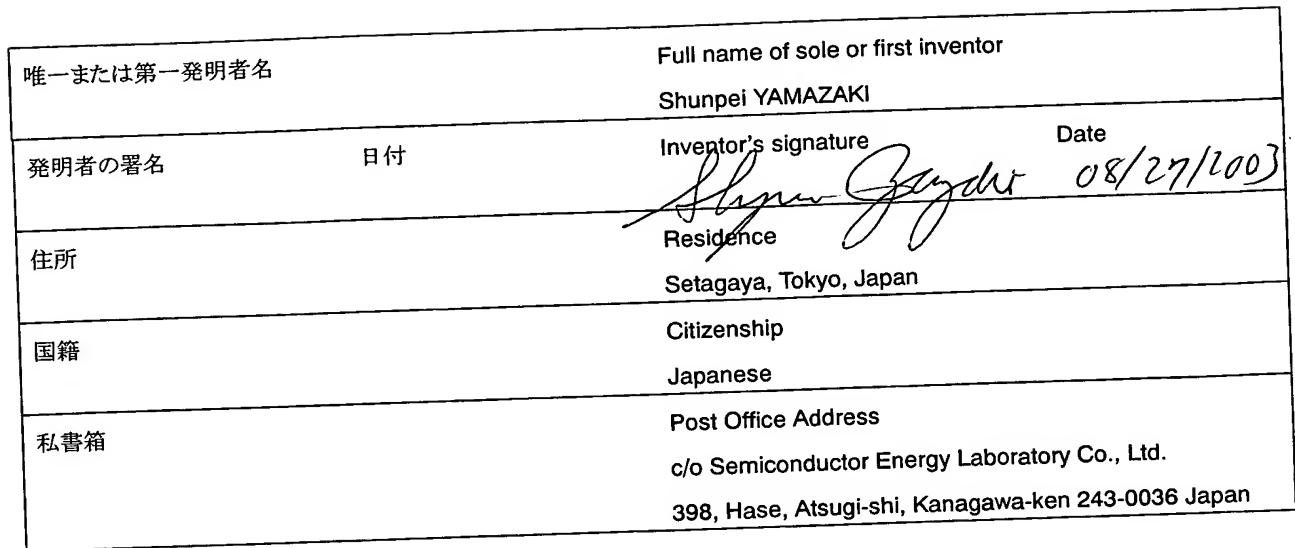 唯一または第一発明者名
Full name of sole or first inventor
Shunpei YAMAZAKI
発明者の署名 日付
Inventor's signature Date
08/27/2003
住所
Residence
Setagaya, Tokyo, Japan
国籍
Citizenship
Japanese
私書箱
Post Office Address
c/o Semiconductor Energy Laboratory Co., Ltd.
398, Hase, Atsugi-shi, Kanagawa-ken 243-0036 Japan